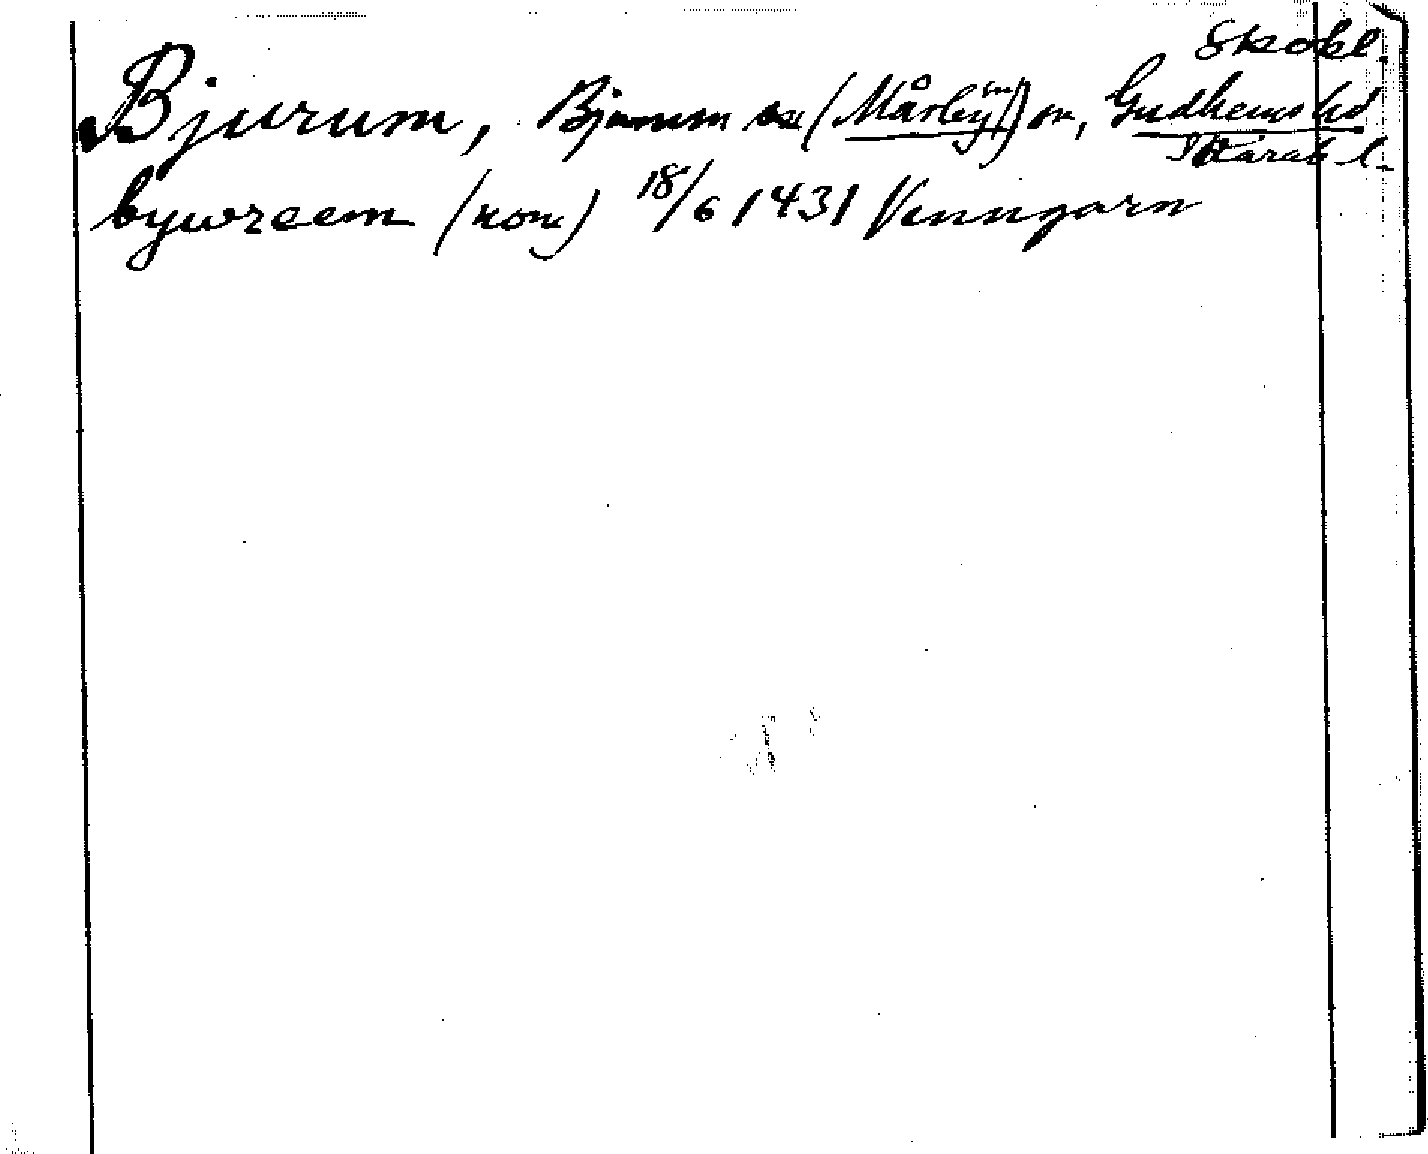 Skobl.
Bjurum, Bjurum sn (Mårby sn) sn, Gudhems hd
Skarab l.
bywreem (kon) 18/6 1431 Venngarn